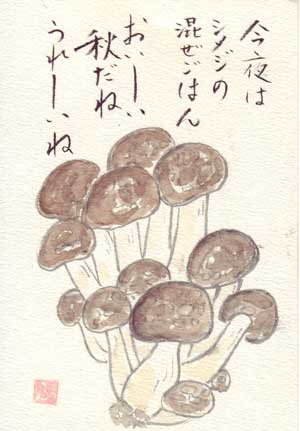 今夜は
シメジの
混ぜごはん
おいしい
秋だね
うれーいね